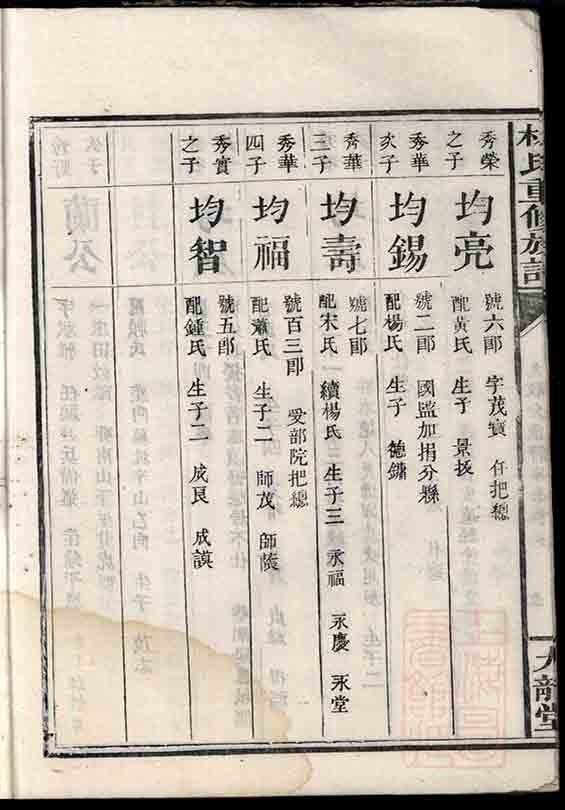 林氏重修族譜
大龍堂
秀榮之子
均亮
號六郎 字茂寶 任把總
配黃氏 生子 景扳
秀華次子
均錫
號二郎 國監加捐分縣
配楊氏 生子 德鏞
秀華三子
均壽
號七郎
配宋氏 續楊氏 生子三 永福 永慶 永堂
秀華四子
均福
號百三郎 受部院把總
配蕭氏 生子二 師茂 師陵
秀實之子
均智
號五郎
配鍾氏 生子二 成良 成謨